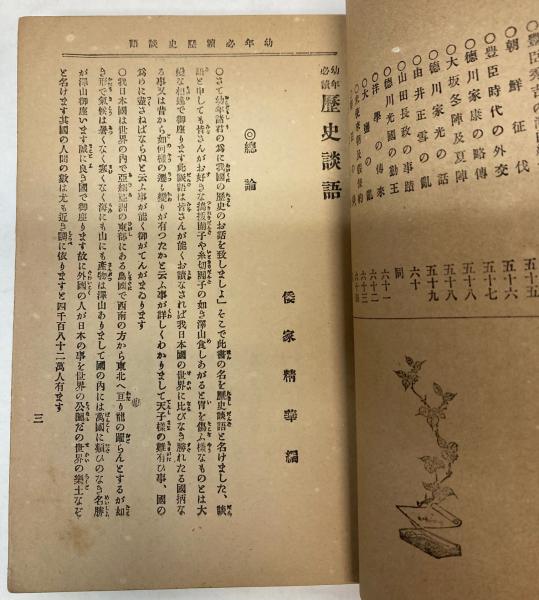 豊臣秀吉の
五十五
朝鮮征伐
五十六
○豊臣時代の外交
五十七
○德川家康の略傳
五十八
○大坂冬陣及夏陣
五十八
○德川家光の話
五十九
○由井正雪の亂
六十
○山田長政の事蹟
同
○德川光國の勤王
六十一
○洋學の傳來
六十二
○大鹽の亂
六十三
幼年必讀歷史談語
幼年必讀 歷史談語
倭家精華編
◎總論
○さて幼年諸君の爲に我國の歷史のお話を致しましよ」そこで此書の名を歷史談語と名けました、談
語と申しても皆さんがお好きな搗拔團子や糸切團子の如き澤山食しあがると胃を傷ふ樣なものとは大
變な相違で御座ります此談語は皆さんが能くお讀なされば我日本國の世界に比びなき勝れたる國柄な
る事又は昔から如何樣の遷り變りが有つたかと云ふ事が詳しくわかりまして天子樣の難有ひ事、國の
爲めに盡さねばならぬと云ふ事が能く御がてんがまゐります
○我日本國は世界の內で亞細亞洲の東部にある島國で西南の方から東北へ亘り龍の躍らんとするが如
き形で氣候は暑くなく寒くなく海にも山にも產物は澤山ありまして國の內には萬國に類ひのなき名勝
が澤山御座います誠に良き國で御座ります故に外國の人が日本の事を世界の公園だの世界の樂土など
と名けます其國の人間の數は尤も近き調に依りますと四千百八十二萬人有ます
三